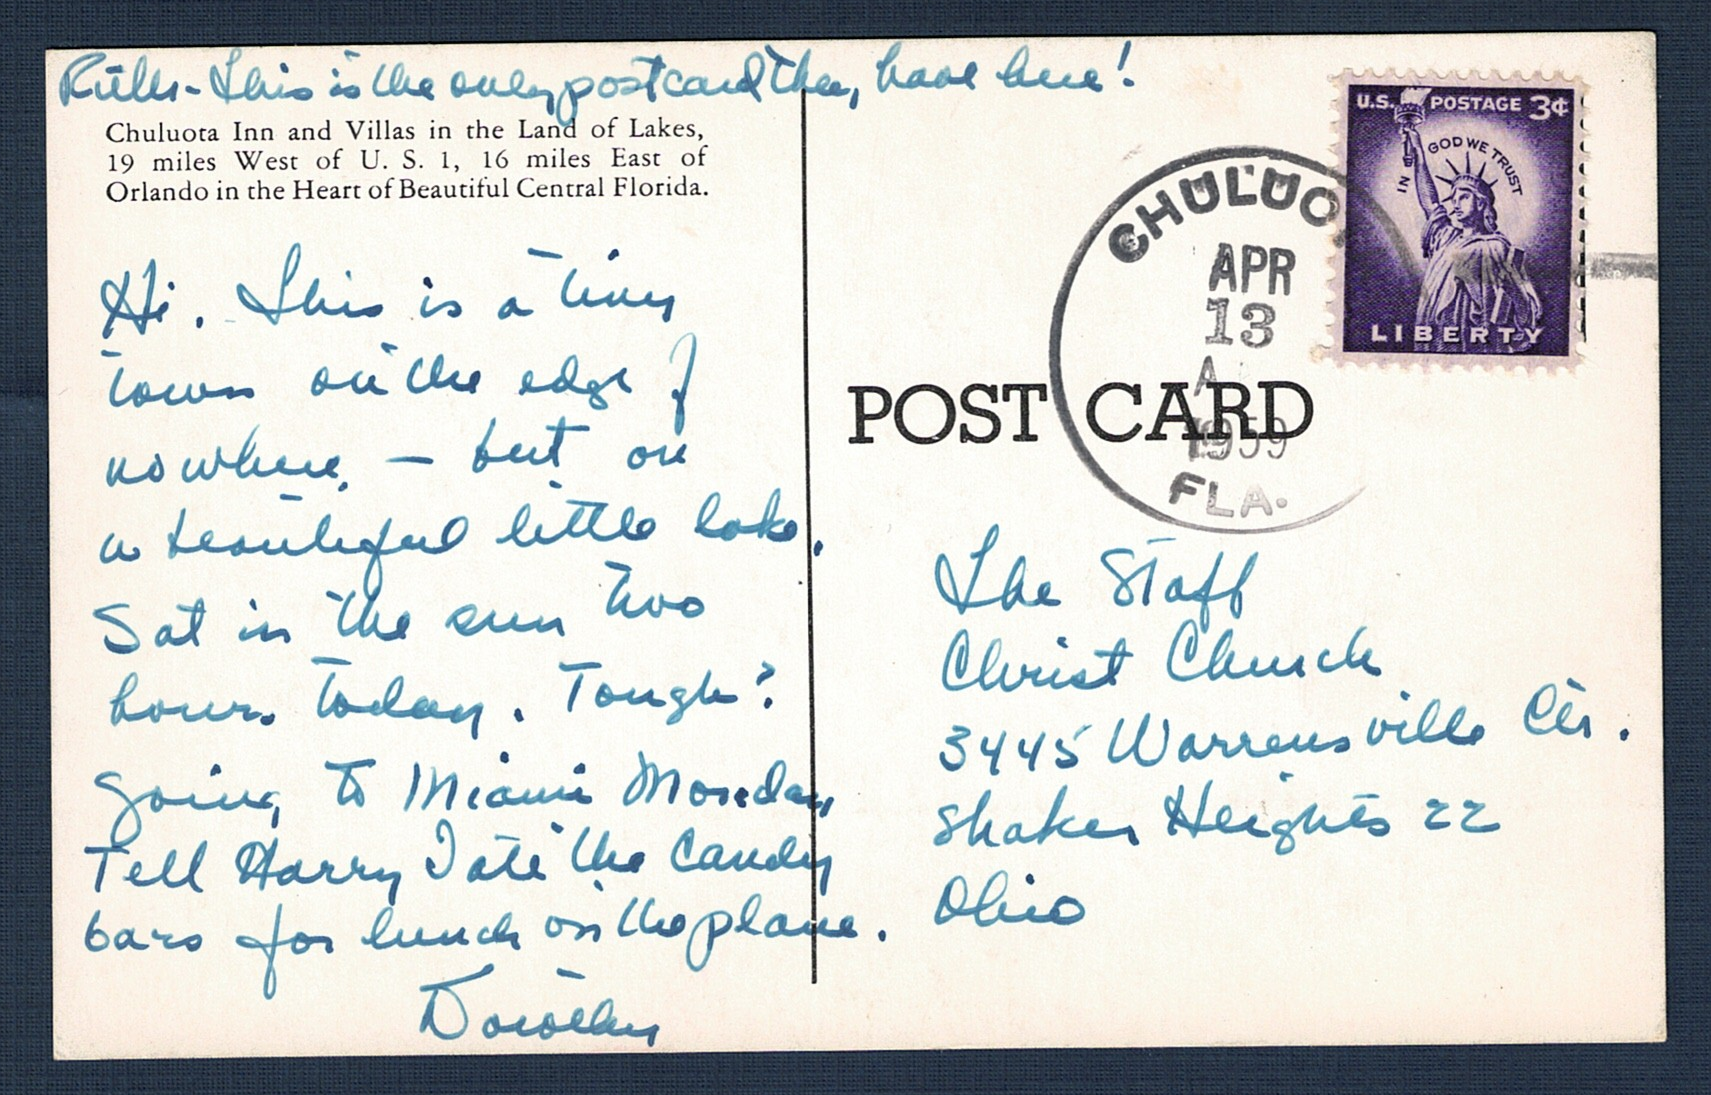 Ruth - This is the only postcard they have here!
Chuluota Inn and Villas in the Land of Lakes,
19 miles West of U. S. 1, 16 miles East of
Orlando in the Heart of Beautiful Central Florida.
Hi. This is a tiny
town on the edge of
nowhere, - but on
a beautiful little lake.
Sat in the sun two
hours today. Tough?
Going to Miami Monday
Tell Harry I ate the candy
bars for lunch on the plane.
Dorothy
U.S. POSTAGE 3¢
IN GOD WE TRUST
LIBERTY
CHULUO
APR
13
A
1959
FLA.
POST CARD
The Staff
Christ Church
3445 Warrensville Ctr.
Shaker Heights 22
Ohio